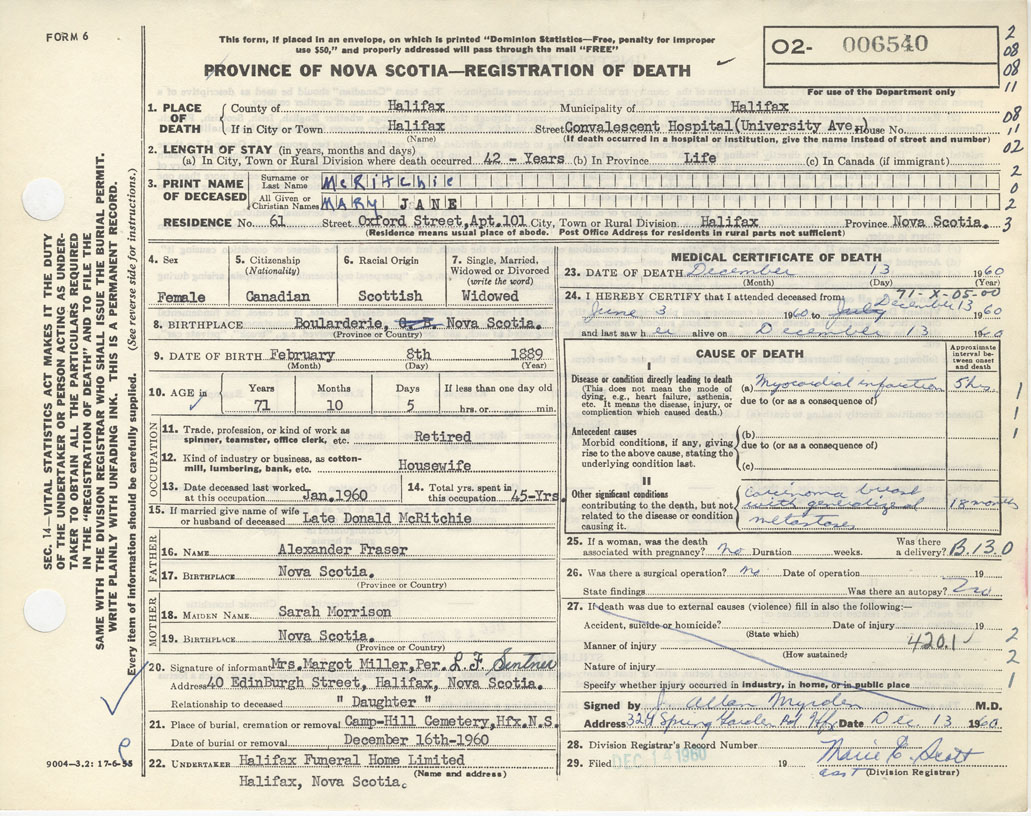 FORM 6
This form, if placed in an envelope, on which is printed "Dominion Statistics—Free, penalty for improper
use $50," and properly addressed will pass through the mail "FREE"
PROVINCE OF NOVA SCOTIA—REGISTRATION OF DEATH
O2- 006540
For use of the Department only
2
08
08
11
08
11
02
2
0
2
3
1. PLACE OF DEATH
County of Halifax Municipality of Halifax
If in City or Town Halifax Street Convalescent Hospital(University Ave.) House No.
(Name) (If death occurred in a hospital or institution, give the name instead of street and number)
2. LENGTH OF STAY (in years, months and days)
(a) In City, Town or Rural Division where death occurred 42 - Years (b) In Province Life (c) In Canada (if immigrant)
3. PRINT NAME OF DECEASED
Surname or Last Name McRitchie
All Given or Christian Names MARY JANE
RESIDENCE No. 61 Street Oxford Street,Apt.101 City, Town or Rural Division Halifax Province Nova Scotia.
(Residence means usual place of abode. Post Office Address for residents in rural parts not sufficient)
4. Sex
Female
5. Citizenship
(Nationality)
Canadian
6. Racial Origin
Scottish
7. Single, Married,
Widowed or Divorced
(write the word)
Widowed
8. BIRTHPLACE Boularderie, C. B. Nova Scotia.
(Province or Country)
9. DATE OF BIRTH February 8th 1889
(Month) (Day) (Year)
10. AGE in
Years Months Days If less than one day old
71 10 5 hrs. or min.
OCCUPATION
11. Trade, profession, or kind of work as
spinner, teamster, office clerk, etc. Retired
12. Kind of industry or business, as cotton-
mill, lumbering, bank, etc. Housewife
13. Date deceased last worked
at this occupation Jan.1960
14. Total yrs. spent in
this occupation 45-Yrs.
15. If married give name of wife
or husband of deceased Late Donald McRitchie
FATHER
16. NAME Alexander Fraser
17. BIRTHPLACE Nova Scotia.
(Province or Country)
MOTHER
18. MAIDEN NAME Sarah Morrison
19. BIRTHPLACE Nova Scotia.
(Province or Country)
20. Signature of informant Mrs.Margot Miller,Per. L.F. Sentner
Address 40 EdinBurgh Street, Halifax, Nova Scotia.
Relationship to deceased " Daughter "
21. Place of burial, cremation or removal Camp-Hill Cemetery,Hfx.N.S.
Date of burial or removal December 16th-1960
22. UNDERTAKER Halifax Funeral Home Limited
(Name and address)
Halifax, Nova Scotia.
MEDICAL CERTIFICATE OF DEATH
23. DATE OF DEATH December 13 1960
(Month) (Day) (Year)
71-X-05-00
24. I HEREBY CERTIFY that I attended deceased from
June 3 1960 to July December 13 1960
and last saw her alive on December 13 1960
CAUSE OF DEATH
Approximate
interval be-
tween onset
and death
I
Disease or condition directly leading to death
(This does not mean the mode of
dying, e.g., heart failure, asthenia,
etc. It means the disease, injury, or
complication which caused death.)
(a) Myocardial infarction 5 hrs.
due to (or as a consequence of)
Antecedent causes
Morbid conditions, if any, giving
rise to the above cause, stating the
underlying condition last.
(b)
due to (or as a consequence of)
(c)
II
Other significant conditions
contributing to the death, but not
related to the disease or condition
causing it.
Carcinoma breast
with generalized
metastases
18 months
1
1
1
25. If a woman, was the death
associated with pregnancy? No Duration weeks. Was there
a delivery? B.13.0
26. Was there a surgical operation? No Date of operation 19
State findings Was there an autopsy? No
27. If death was due to external causes (violence) fill in also the following:—
Accident, suicide or homicide? Date of injury 19
(State which)
Manner of injury 420.1
(How sustained)
Nature of injury
Specify whether injury occurred in industry, in home, or in public place
2
2
1
Signed by J. Allan Myrden M.D.
Address 324 Spring Garden Rd Hfx Date Dec 13 1960.
28. Division Registrar's Record Number
29. Filed DEC 14 1960 19 Marie C. Scott
asst (Division Registrar)
SEC. 14—VITAL STATISTICS ACT MAKES IT THE DUTY
OF THE UNDERTAKER OR PERSON ACTING AS UNDER-
TAKER TO OBTAIN ALL THE PARTICULARS REQUIRED
IN THE "REGISTRATION OF DEATH" AND TO FILE THE
SAME WITH THE DIVISION REGISTRAR WHO SHALL ISSUE THE BURIAL PERMIT.
WRITE PLAINLY WITH UNFADING INK. THIS IS A PERMANENT RECORD.
Every item of information should be carefully supplied. (See reverse side for instructions.)
9004—3.2: 17-6-55